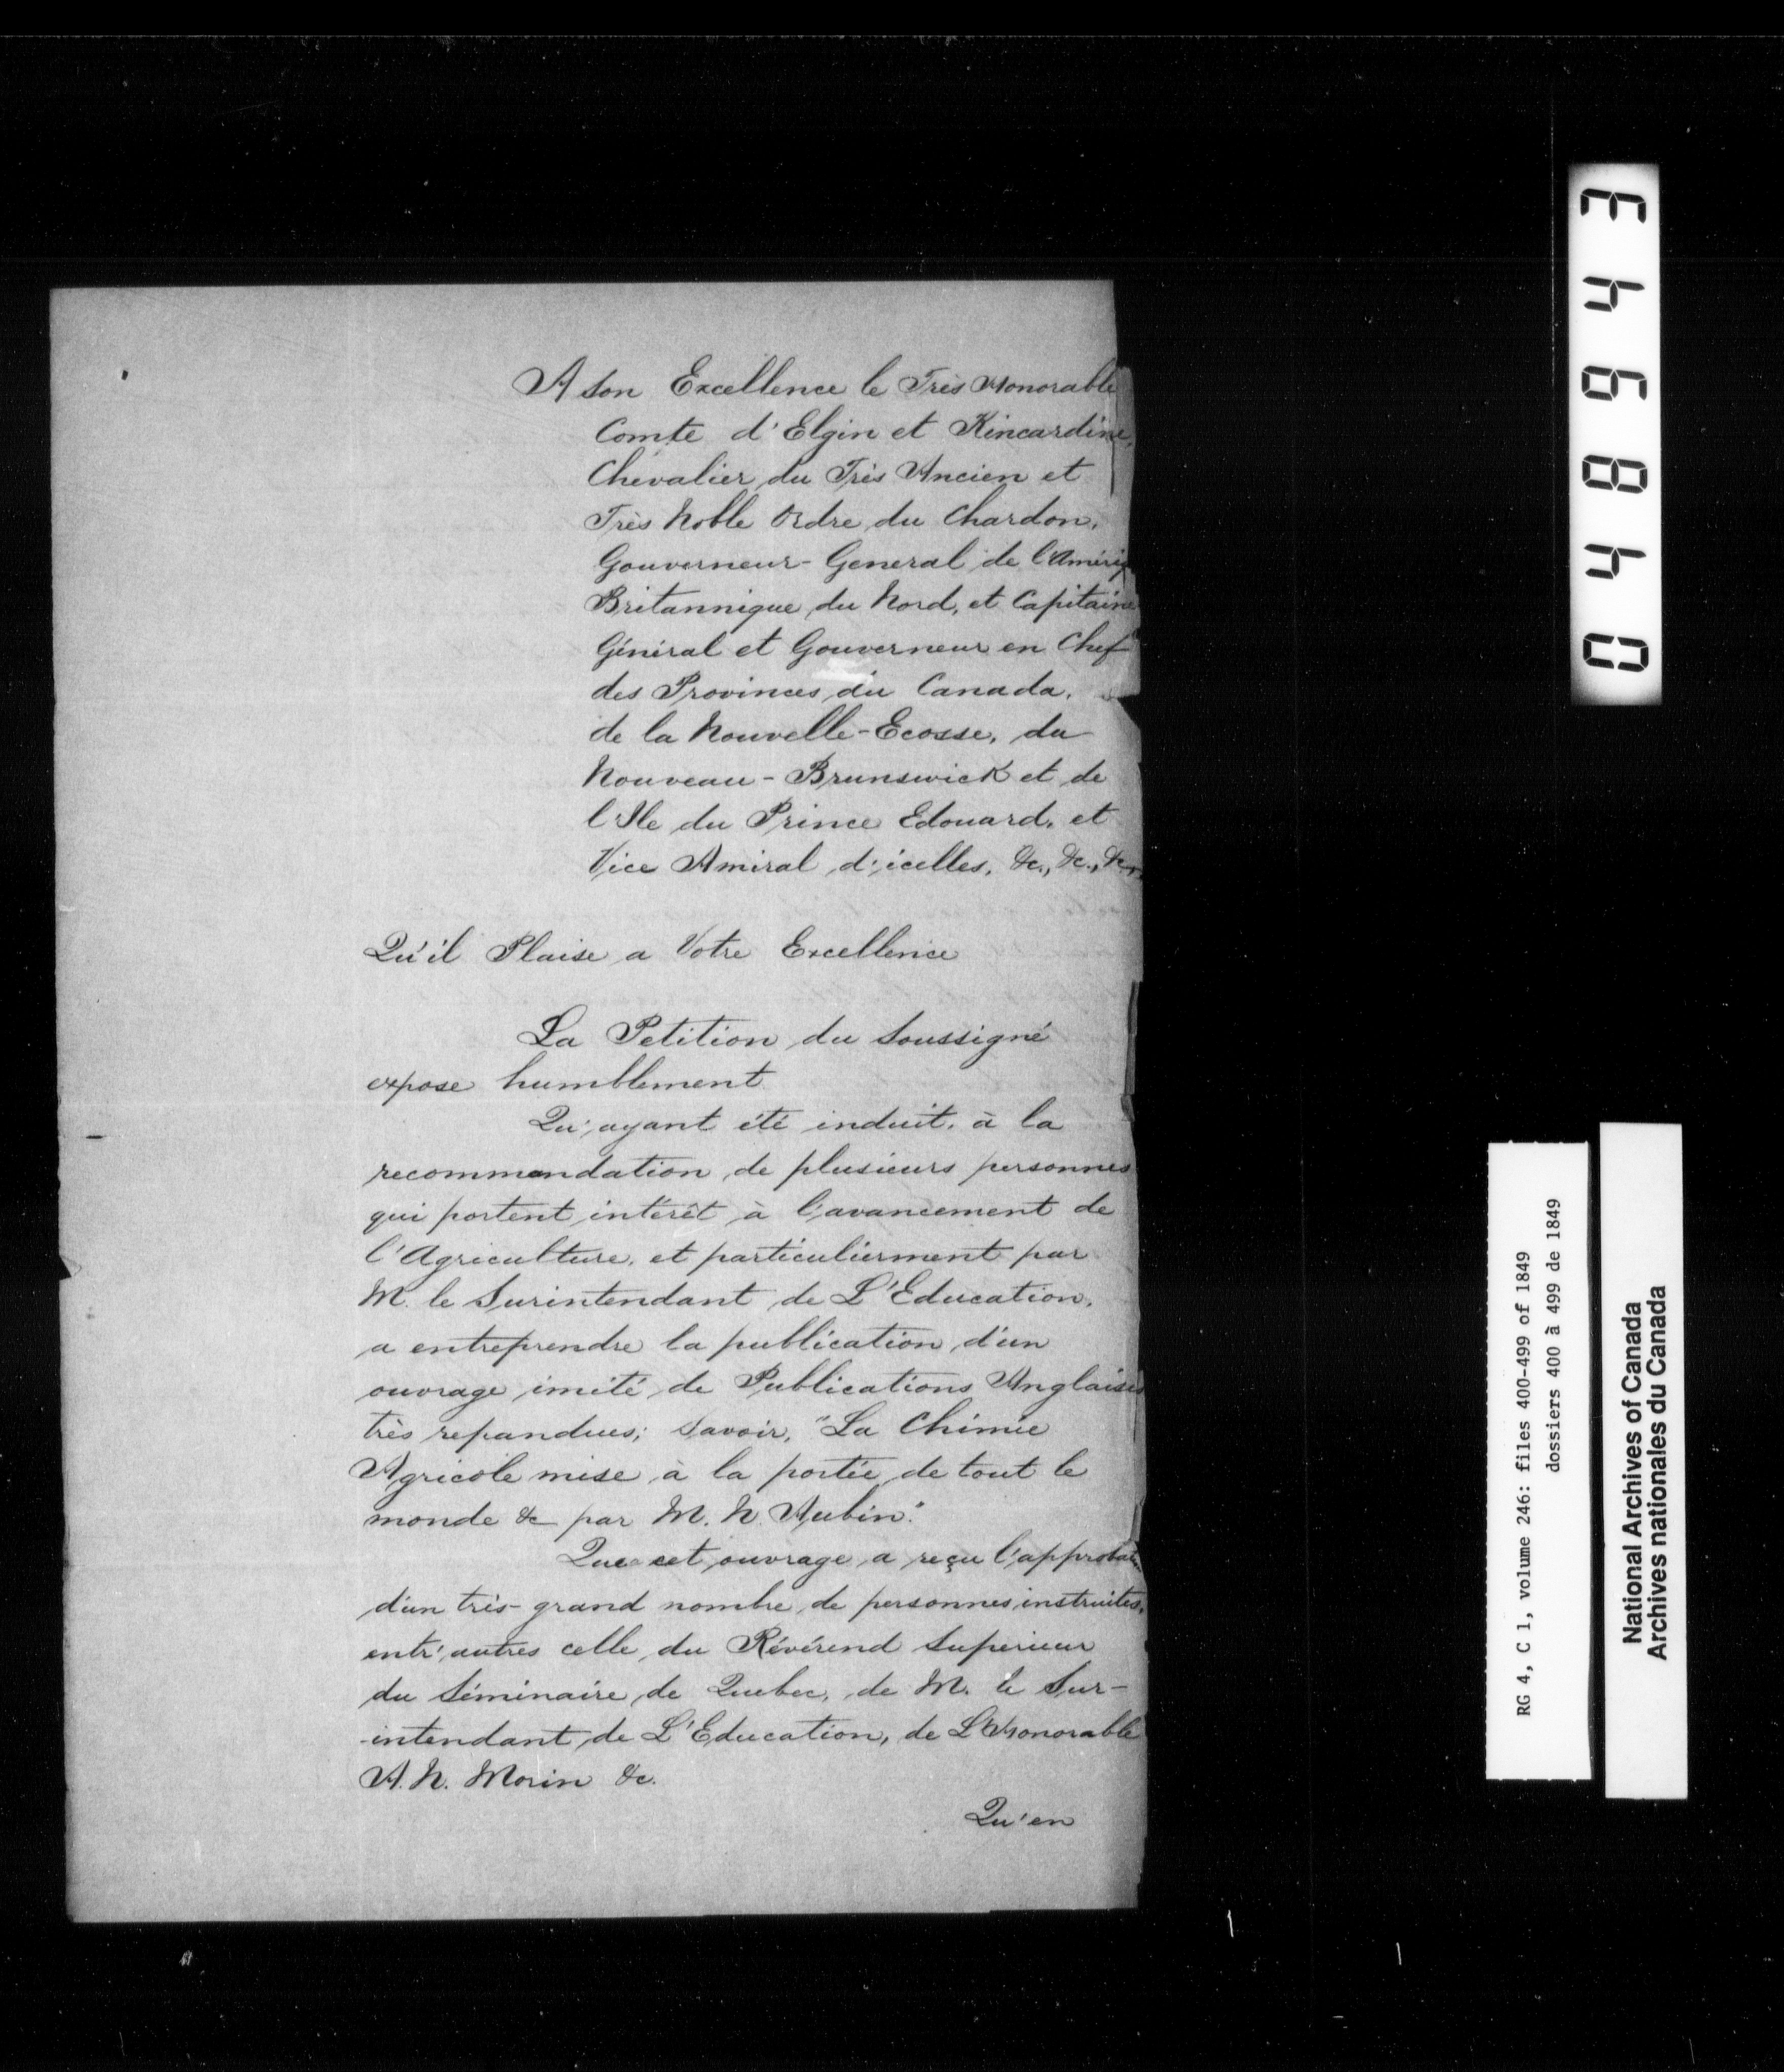 A Son Excellence le Très Honorable
Comte d'Elgin et Kincardine,
Chevalier du Très Ancien et
Très Noble Ordre du Chardon,
Gouverneur-General de l'Amériq
Britannique du Nord, et Capitaine
Général et Gouverneur en Chef
des Provinces du Canada,
de la Nouvelle-Ecosse, du
Nouveau-Brunswick et de
l'Ile du Prince Edouard, et
Vice Amiral d'icelles, &c., &c., &c.,
Qu'il Plaise a Votre Excellence
La Petition du Soussigné
expose humblement
Qu'ayant été induit, à la
recommandation de plusieurs personnes
qui portent intérêt à l'avancement de
l'Agriculture, et particulierment par
M. le Surintendant de L'Education,
a entreprendre la publication d'un
ouvrage imité de Publications Anglaises
très repandues; savoir, "La Chimie
Agricole mise à la portée de tout le
monde &c par M. N. Aubin."
Que cet ouvrage a reçu l'approbation
d'un très-grand nombre de personnes instruites,
entr'autres celle du Révérend Superieur
du Séminaire de Quebec, de M. le Sur-
-intendant de L'Education, de L'Honorable
A. N. Morin &c.
Qu'en
048943
RG 4, C 1, volume 246: files 400-499 of 1849
dossiers 400 à 499 de 1849
National Archives of Canada
Archives nationales du Canada